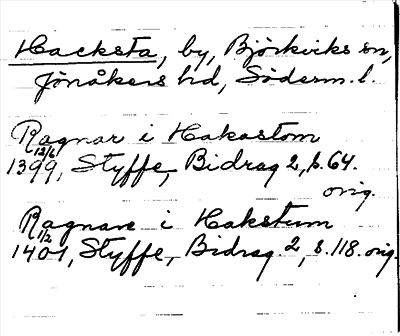 Hacksta, by, Björkviks sn,
Jönåkers hd, Söderm. l.
Ragnar i Hakastom
12/6
1399, Styffe, Bidrag 2, s. 64.
orig.
Ragnare i Hakstum
1/2
1401, Styffe, Bidrag 2, s. 118. orig.